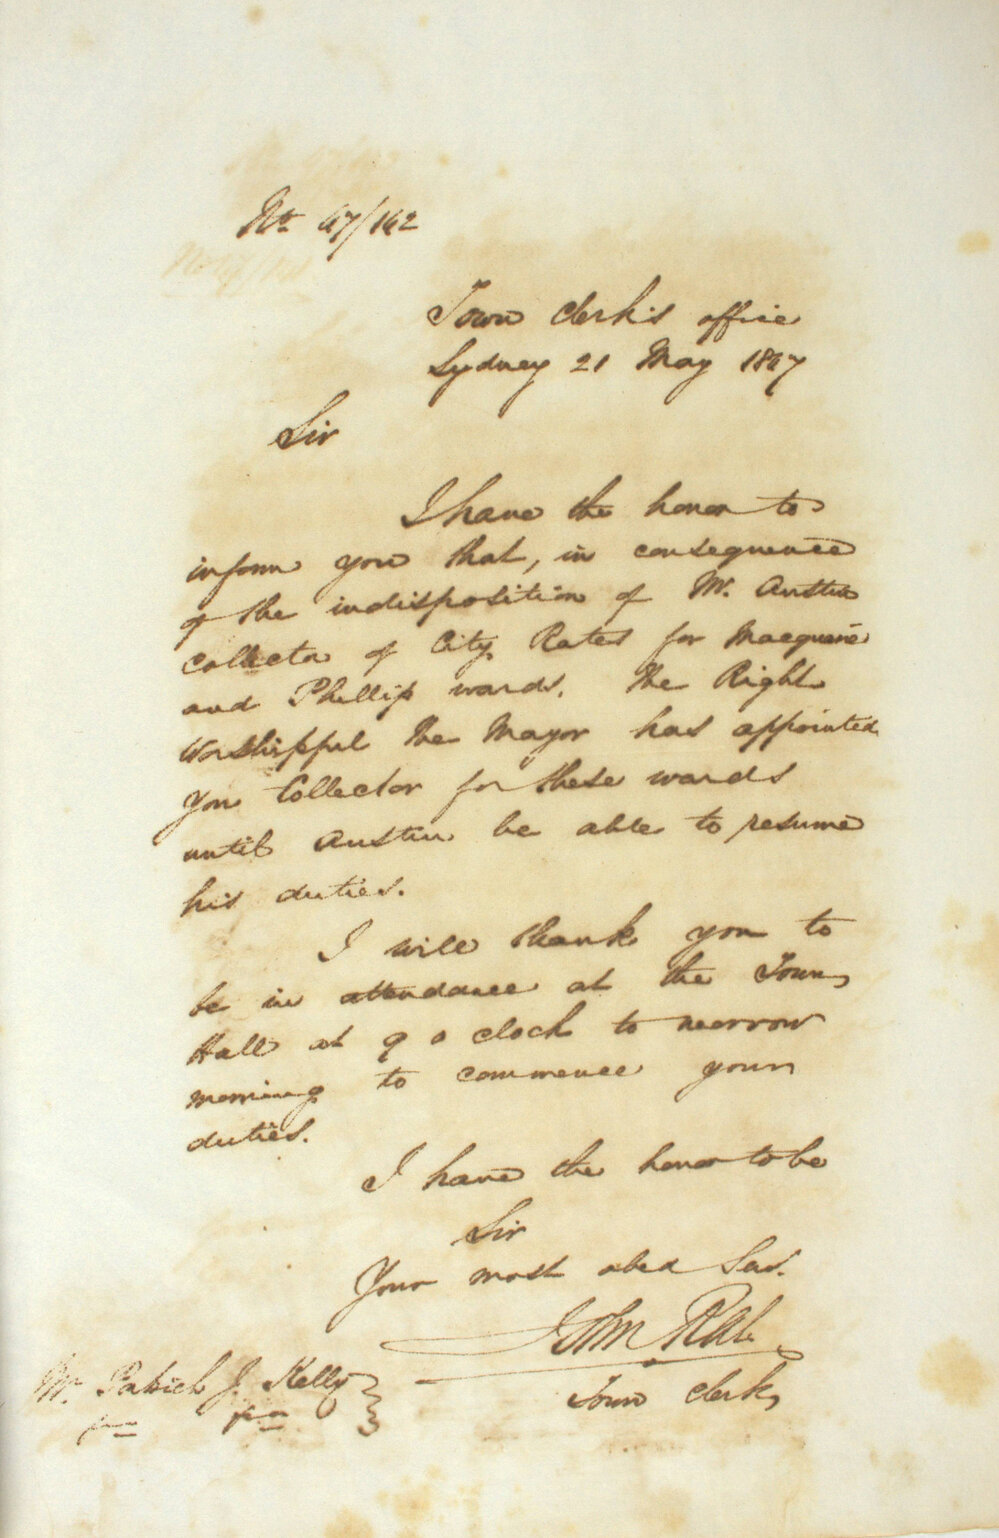 No. 47/142
Town Clerk's office
Sydney 21 May 1847
Sir
I have the honor to
inform you that, in consequence
of the indisposition of Mr. Austin
Collector of City Rates for Macquarie
and Phillip wards, the Right
Worshipful the Mayor has appointed
you Collector for these wards
until Austin be able to resume
his duties.
I will thank you to
be in attendance at the Town
Hall at 9 o clock to morrow
morning to commence your
duties.
I have the honor to be
Sir
Your most obed Ser.
John Rae
Town Clerk
Mr. Patrick J. Kelly